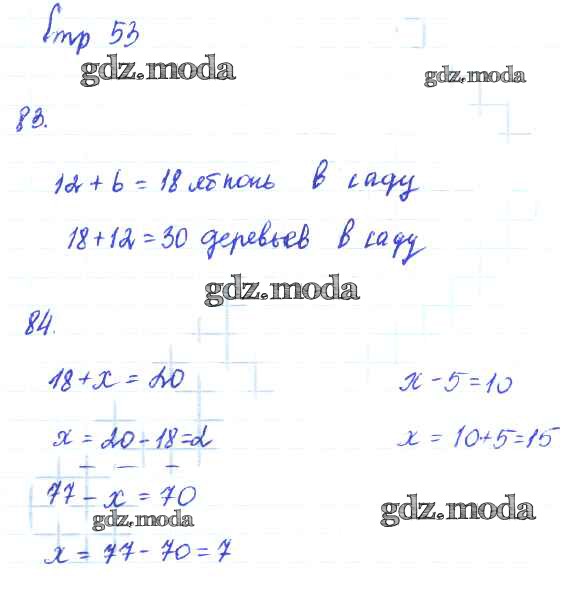 Стр 53
gdz.moda gdz.moda
83.
12 + 6 = 18 яблонь в саду
18 + 12 = 30 деревьев в саду
gdz.moda
84.
18 + х = 20 х - 5 = 10
х = 20 - 18 = 2 х = 10 + 5 = 15
77 - х = 70
gdz.moda gdz.moda
х = 77 - 70 = 7